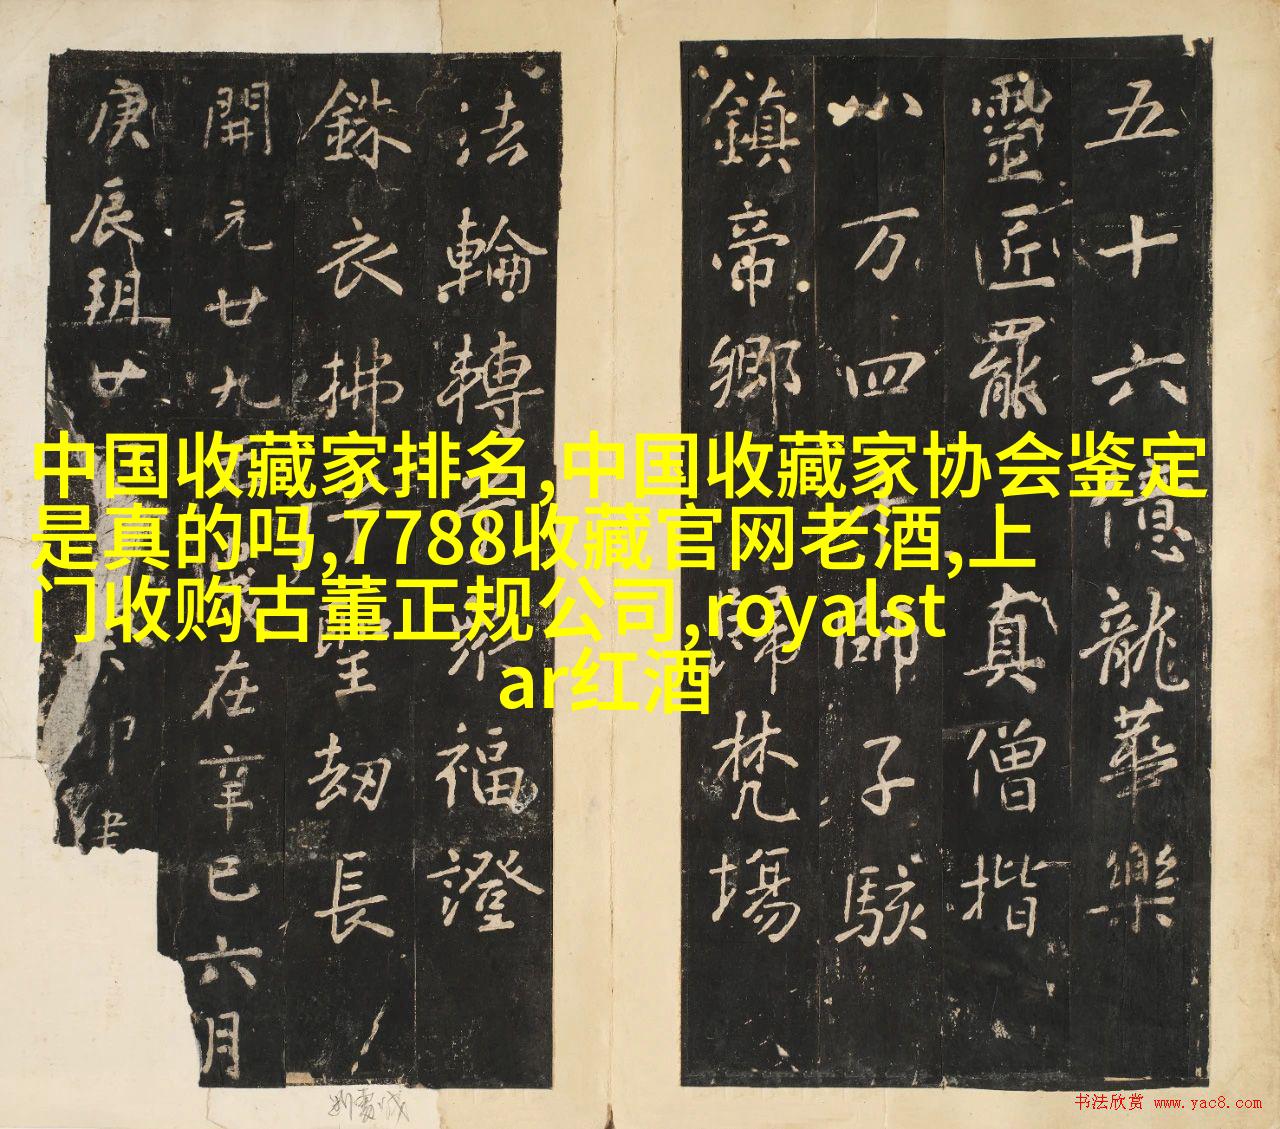 中国收藏家排名,中国收藏家协会鉴定
是真的吗,7788收藏官网老酒,上
门收购古董正规公司,royalst
ar红酒
五十六億龍華樂
靈匠罷真僧揩
八万四師子駭
鎮帝鄉歸梵場
法輪轉衆福證
銖衣拂聖劫長
開元廿九歲在辛巳六月
庚辰朔廿卯建
书法欣赏 www.yac8.com